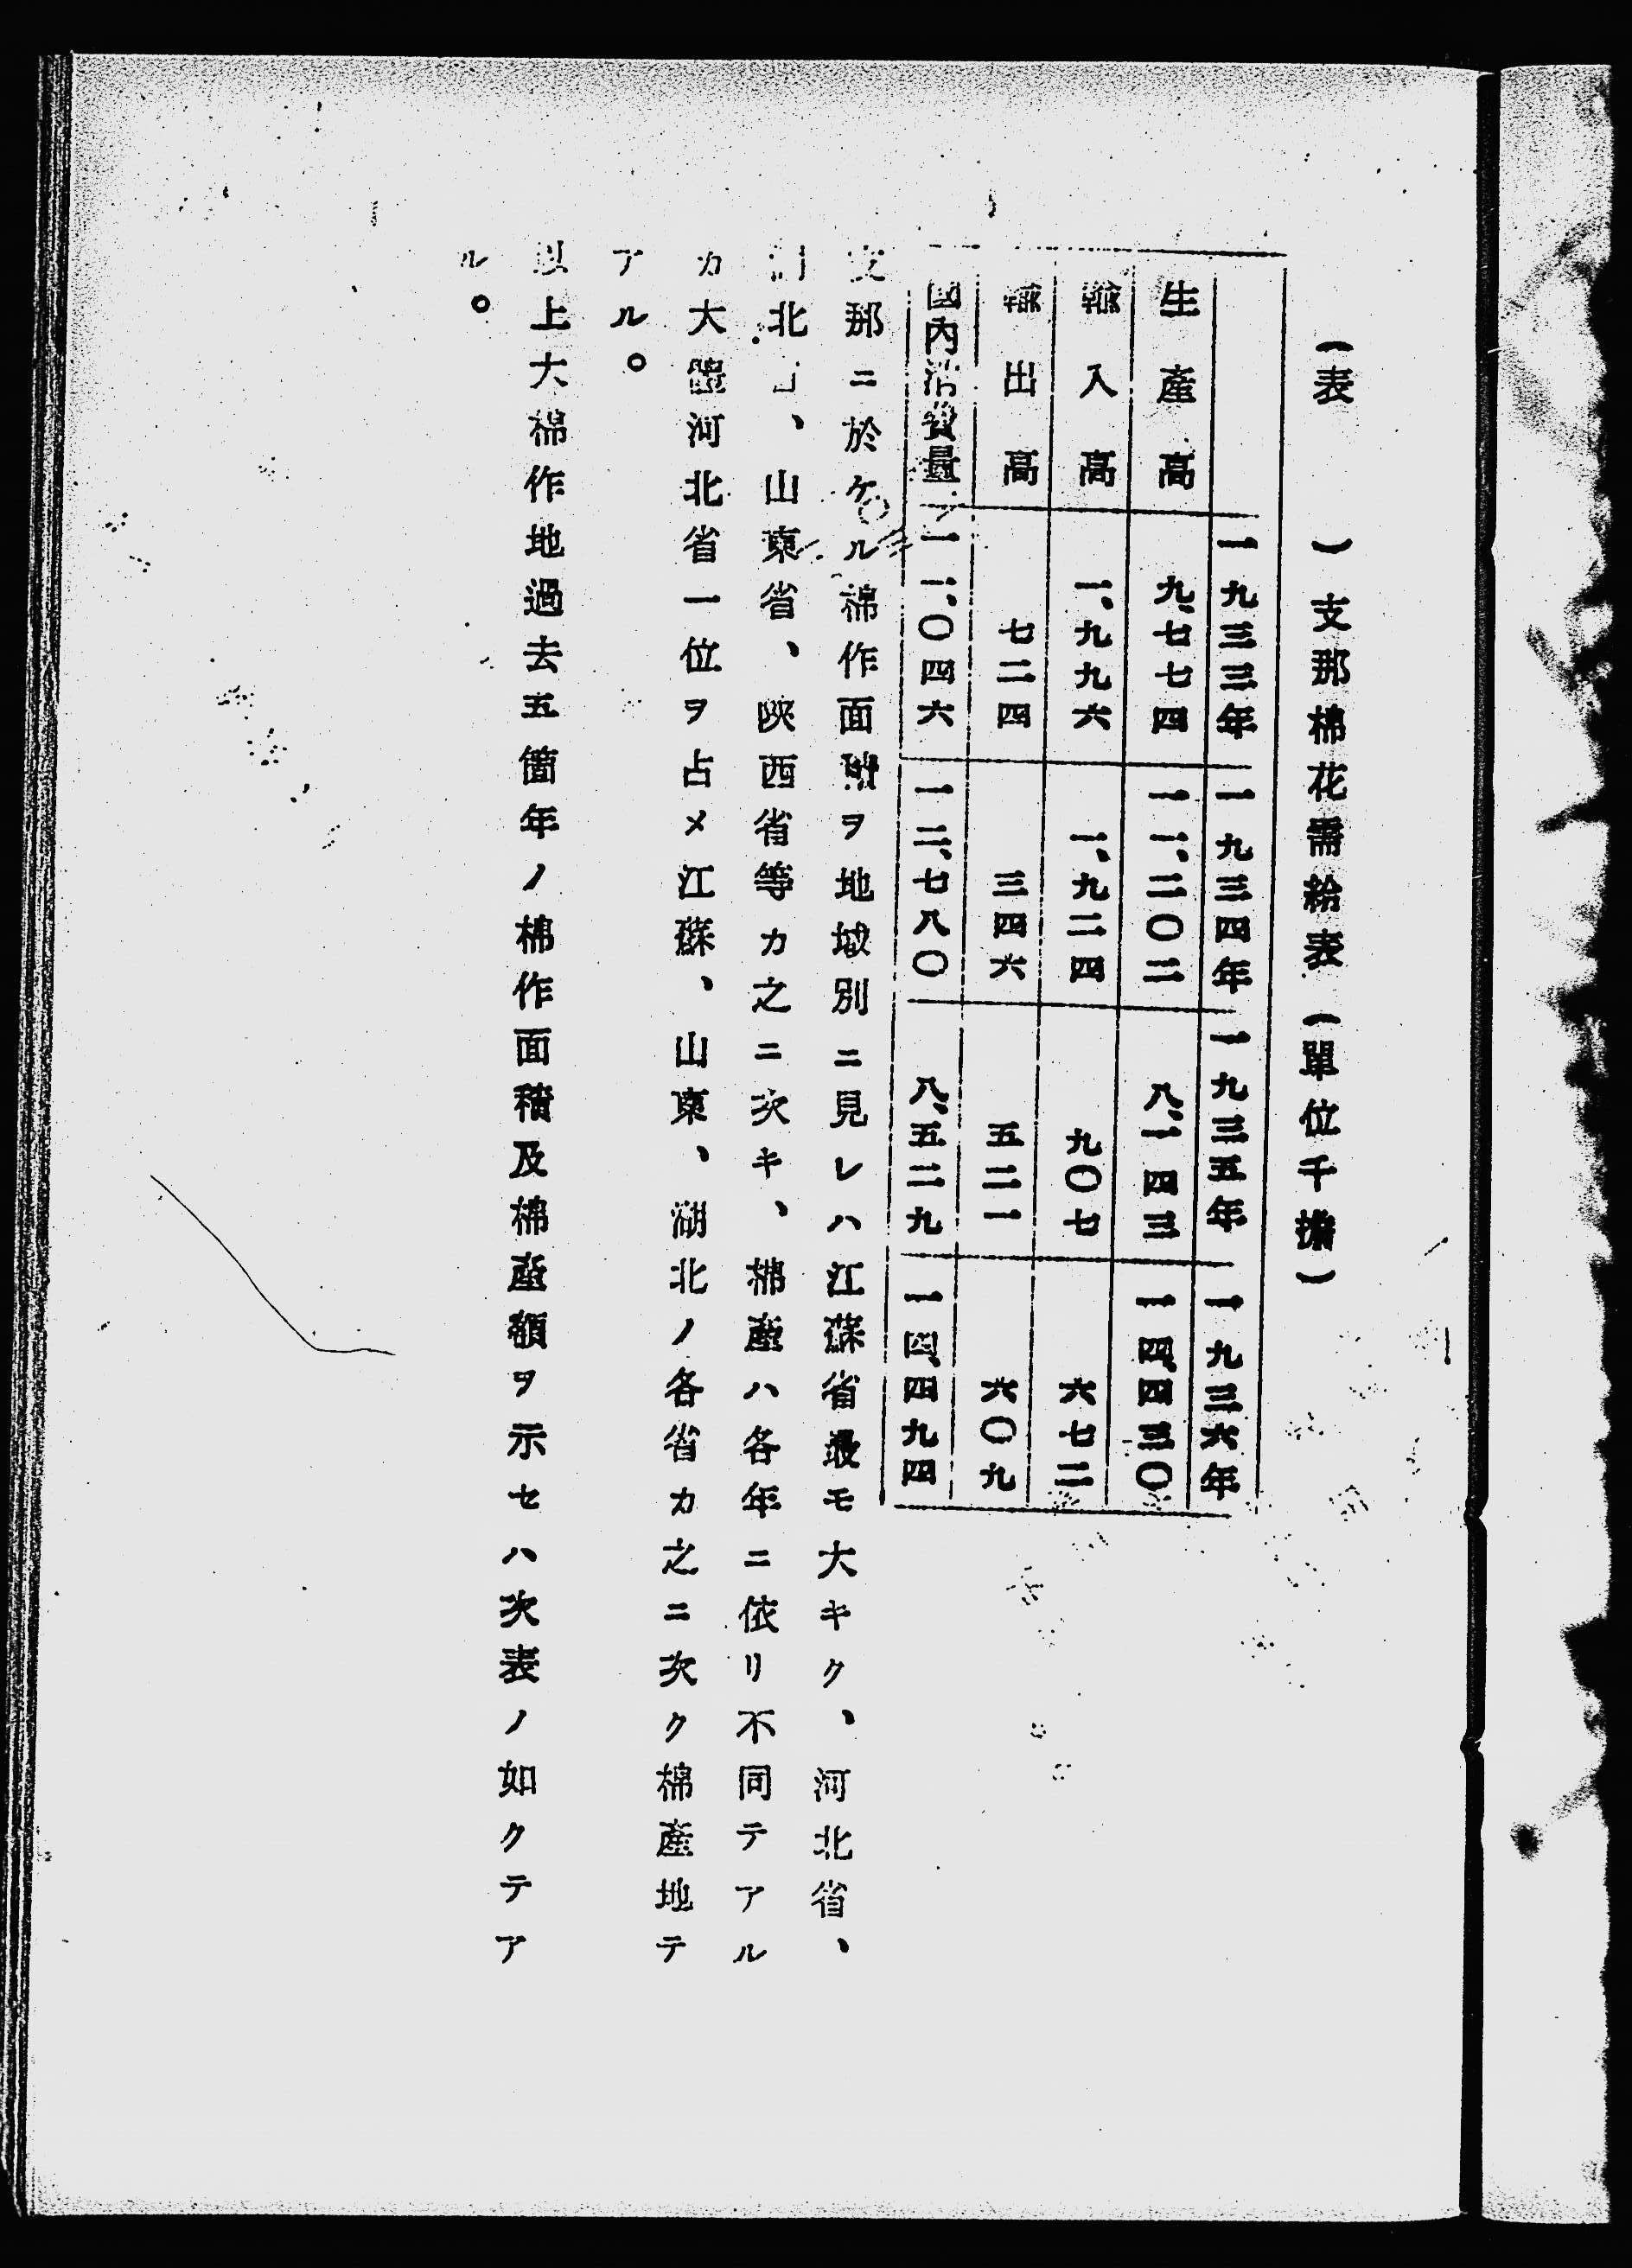 （表　　）支那棉花需給表（單位千擔）
一九三三年　一九三四年　一九三五年　一九三六年
生產高　九、七七四　一一、二〇二　八、一四三　一四、四三〇
輸入高　一、九九六　一、九二四　九〇七　六七二
輸出高　七二四　三四六　五二一　六〇九
國內消費量　一一、〇四六　一二、七八〇　八、五二九　一四、四九四
支那ニ於ケル棉作面積ヲ地域別ニ見レハ江蘇省最モ大キク、河北省、
湖北省、山東省、陝西省等カ之ニ次キ、棉產ハ各年ニ依リ不同テアル
カ大體河北省一位ヲ占メ江蘇、山東、湖北ノ各省カ之ニ次ク棉產地テ
アル。
以上大棉作地過去五箇年ノ棉作面積及棉產額ヲ示セハ次表ノ如クテア
ル。